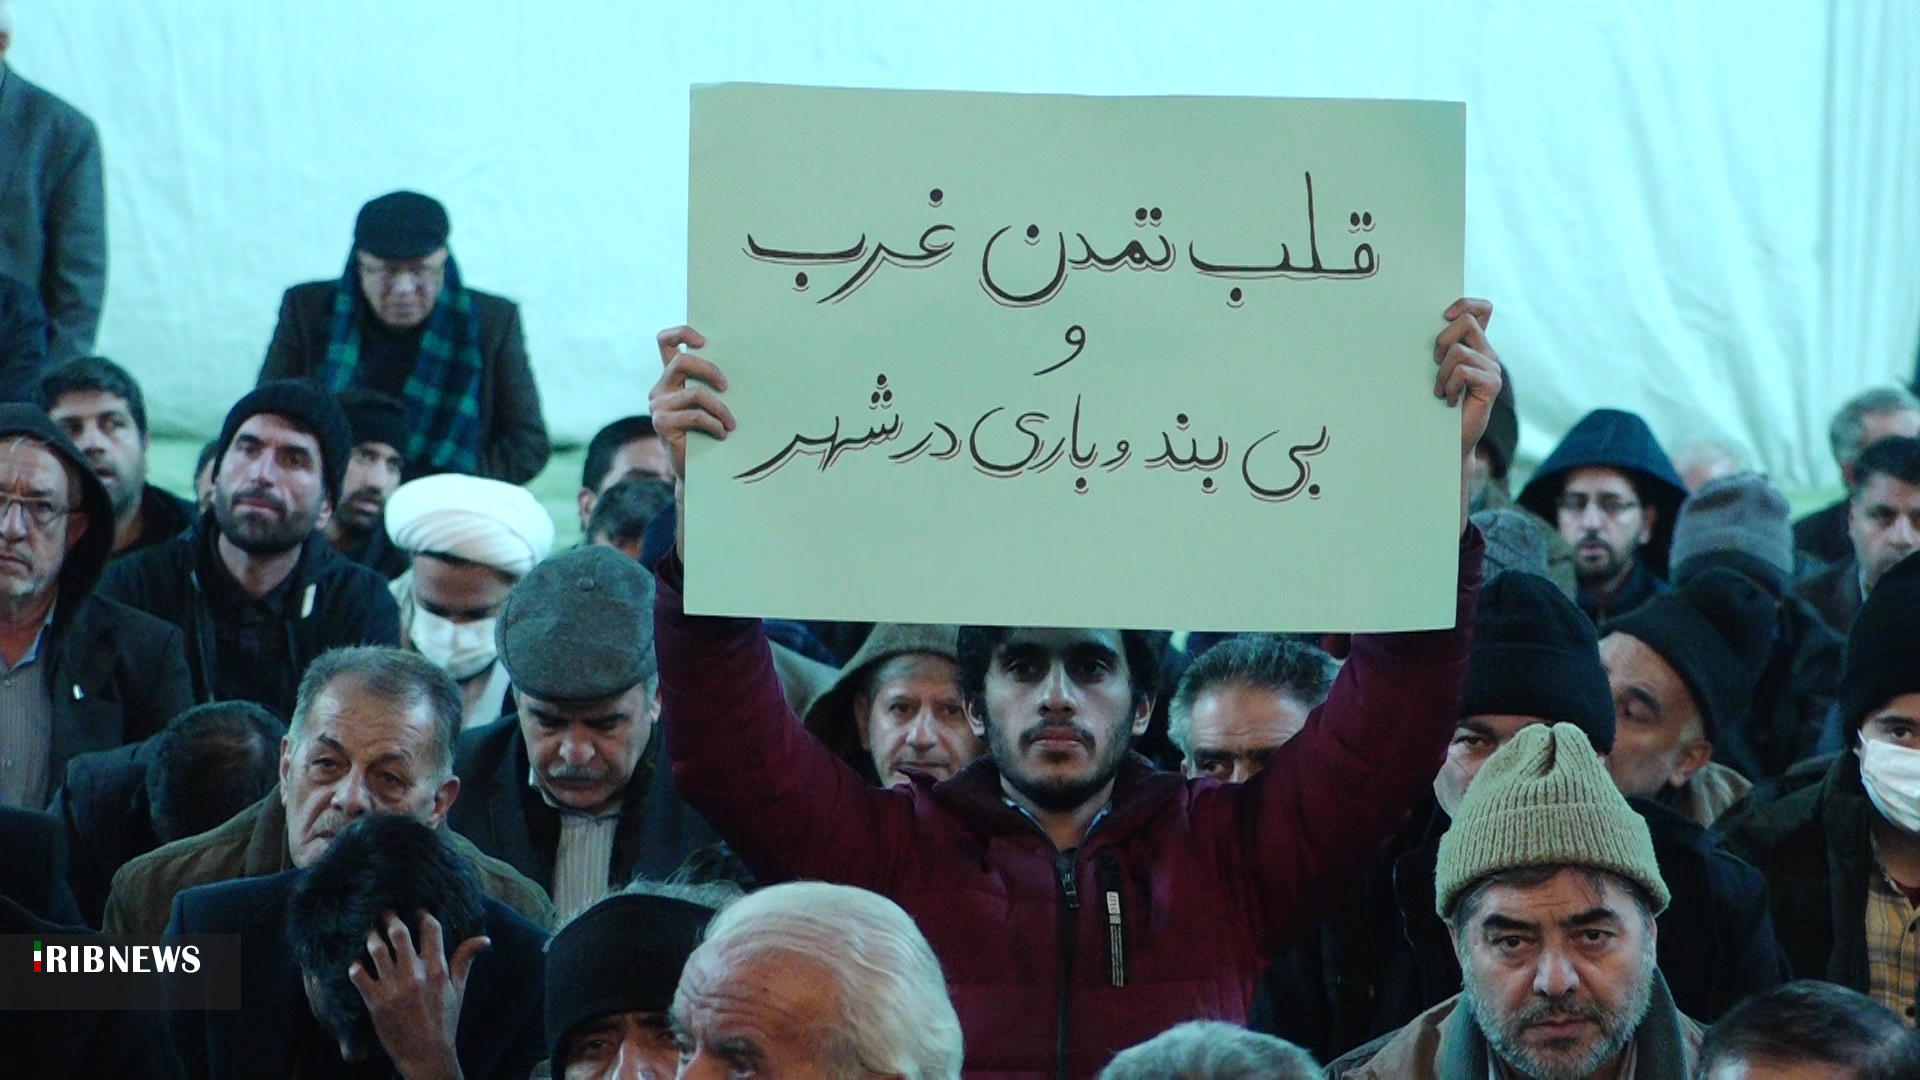 قلب تمدن غرب
و
بی بند و باری در شهر
IRIBNEWS